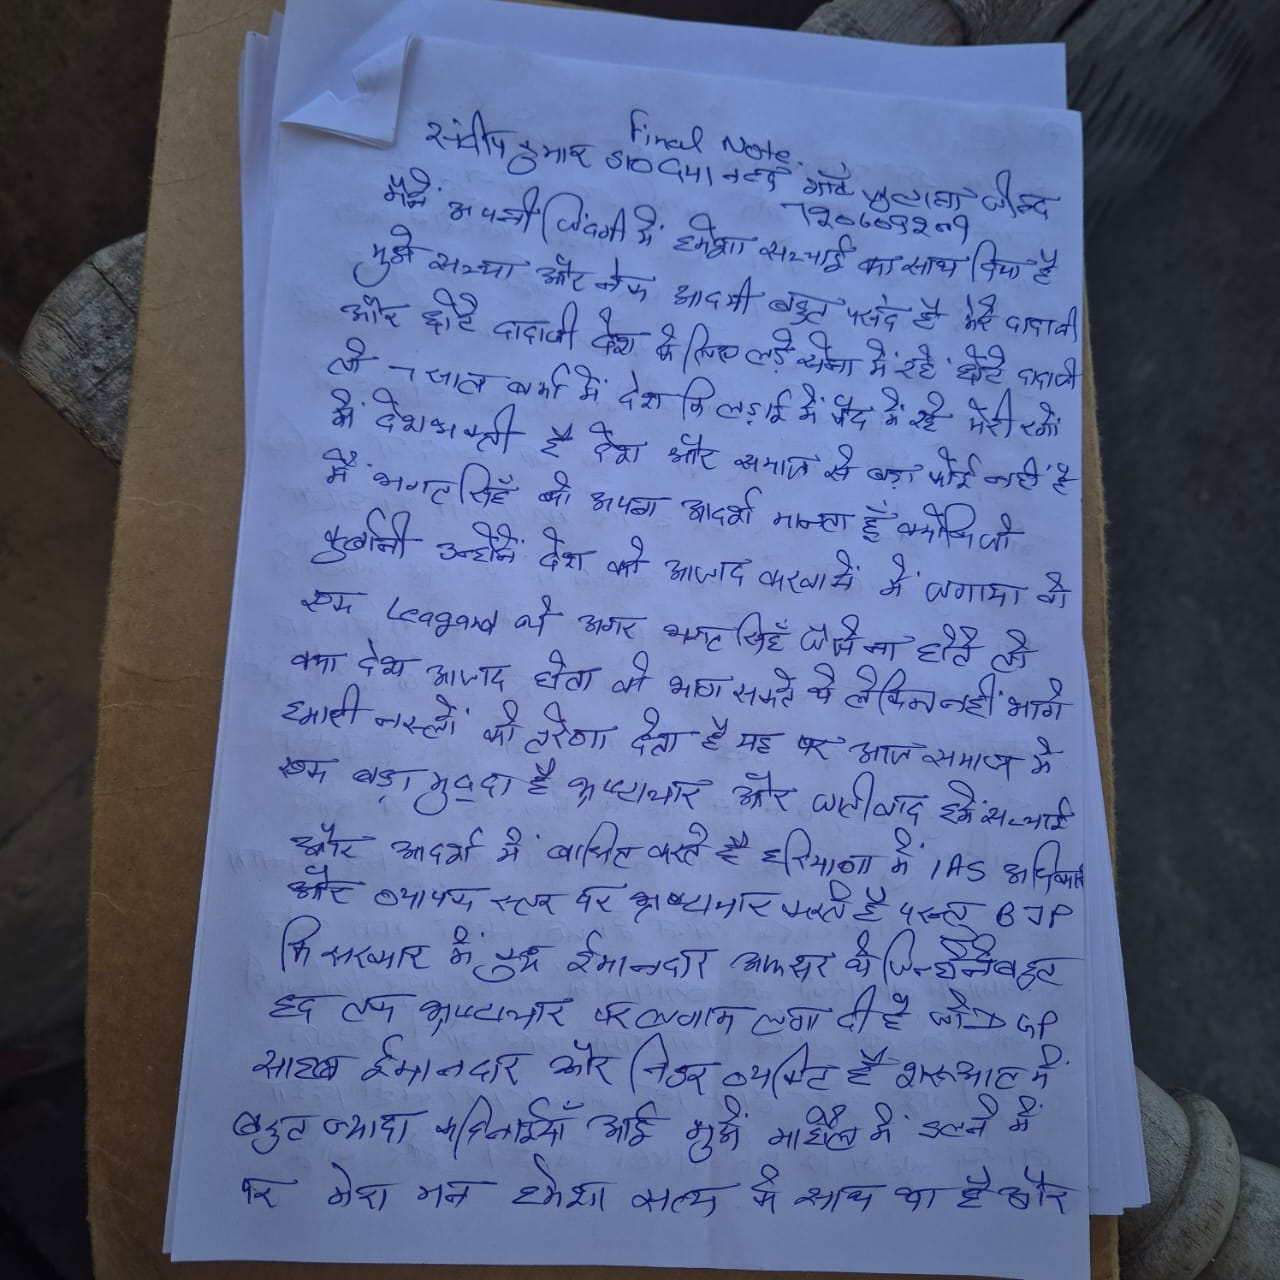 Final Note.
संदीप कुमार S/O दया नन्द गांव जुलाना जीन्द
720609209
मैंने अपनी जिंदगी में हमेशा सच्चाई का साथ दिया है
मुझे सच्चा और नेक आदमी बहुत पसंद है मेरे दादाजी
और छोटे दादाजी देश के लिए लड़े सेना में रहे छोटे दादाजी
तो 7 साल बर्मा में देश कि लड़ाई में कैद में रहे मेरी रगों
में देशभक्ती है देश और समाज से बड़ा कोई नहीं है
मैं भगतसिहँ को अपना आदर्श मानता हूँ क्योंकि जो
कुर्बानी उन्होंने देश को आजाद करवाने में लगाया वो
एक Leagand थे अगर भगत सिहँ जैसे ना होते तो
क्या देश आजाद होता वो भाग सकते थे लेकिन नहीं भागे
हमारी नस्लों को प्रेरणा देता है यह पर आज समाज में
एक बड़ा मुद्दा है भ्रष्टाचार और जातीवाद हमें सच्चाई
और आदर्श में बाधित करते है हरियाणा में IAS अधिकारी
और व्यापक स्तर पर भ्रष्टाचार करते है परन्तु BJP
कि सरकार में कुछ ईमानदार अफसर थे जिन्होंने बहुत
हद तक भ्रष्टाचार पर लगाम लगा दी है जो DGP
साहब ईमानदार और निडर व्यक्ति है शरूआत में
बहुत ज्यादा कठिनाईयाँ आई मुझे माहौल में ढलने में
पर मेरा मन हमेशा सत्य के साथ था है और